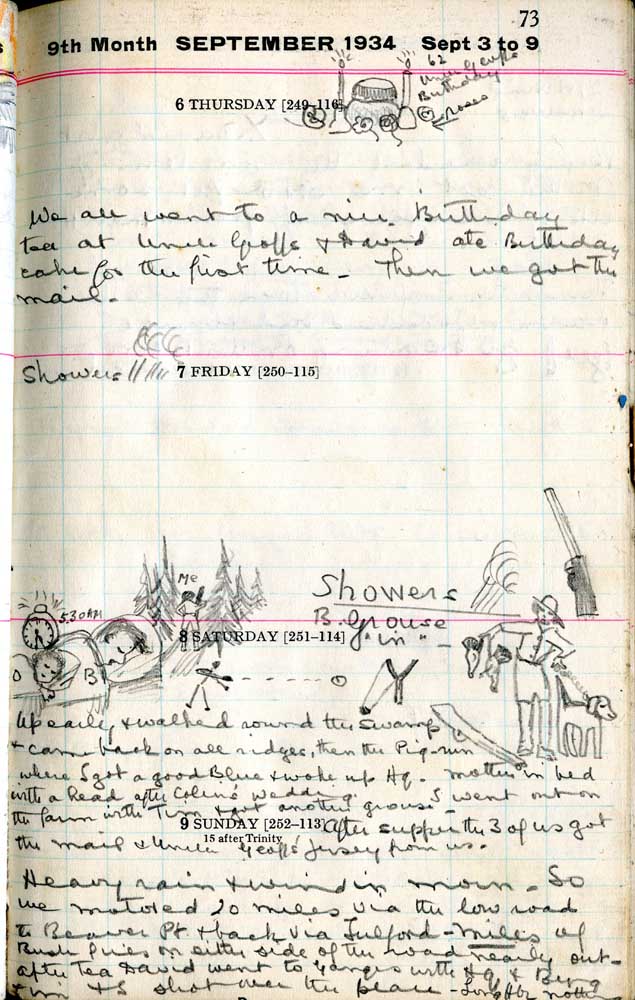 73
9th Month SEPTEMBER 1934 Sept 3 to 9
62
Uncle Geoffs
Birthday
6 THURSDAY [249–116]
roses
We all went to a nice Birthday
tea at Uncle Geoffs & David ate Birthday
cake for the first time – Then we got the
mail.
Showers 7 FRIDAY [250–115]
Me
Showers
5.30 AM
B. Grouse
8 SATURDAY [251–114] "in" –
D B
Up early & walked round the swamp
& came back on all ridges, then the Pig-run
where I got a good Blue & woke up Hq. Mother in bed
with a head after Colins wedding. I went out on
the farm with Tim & got another grouse
9 SUNDAY [252–113] After supper the 3 of us got
15 after Trinity
the mail & Uncle Geoffs Jersey from us.
Heavy rain & wind in morn – So
we motored 20 miles via the low road
to Beaver Pt & back via Fulford – miles of
Bush fires on either side of the road nearly out –
after tea David went to Ganges with Hq &
Tim & I shot over the place –